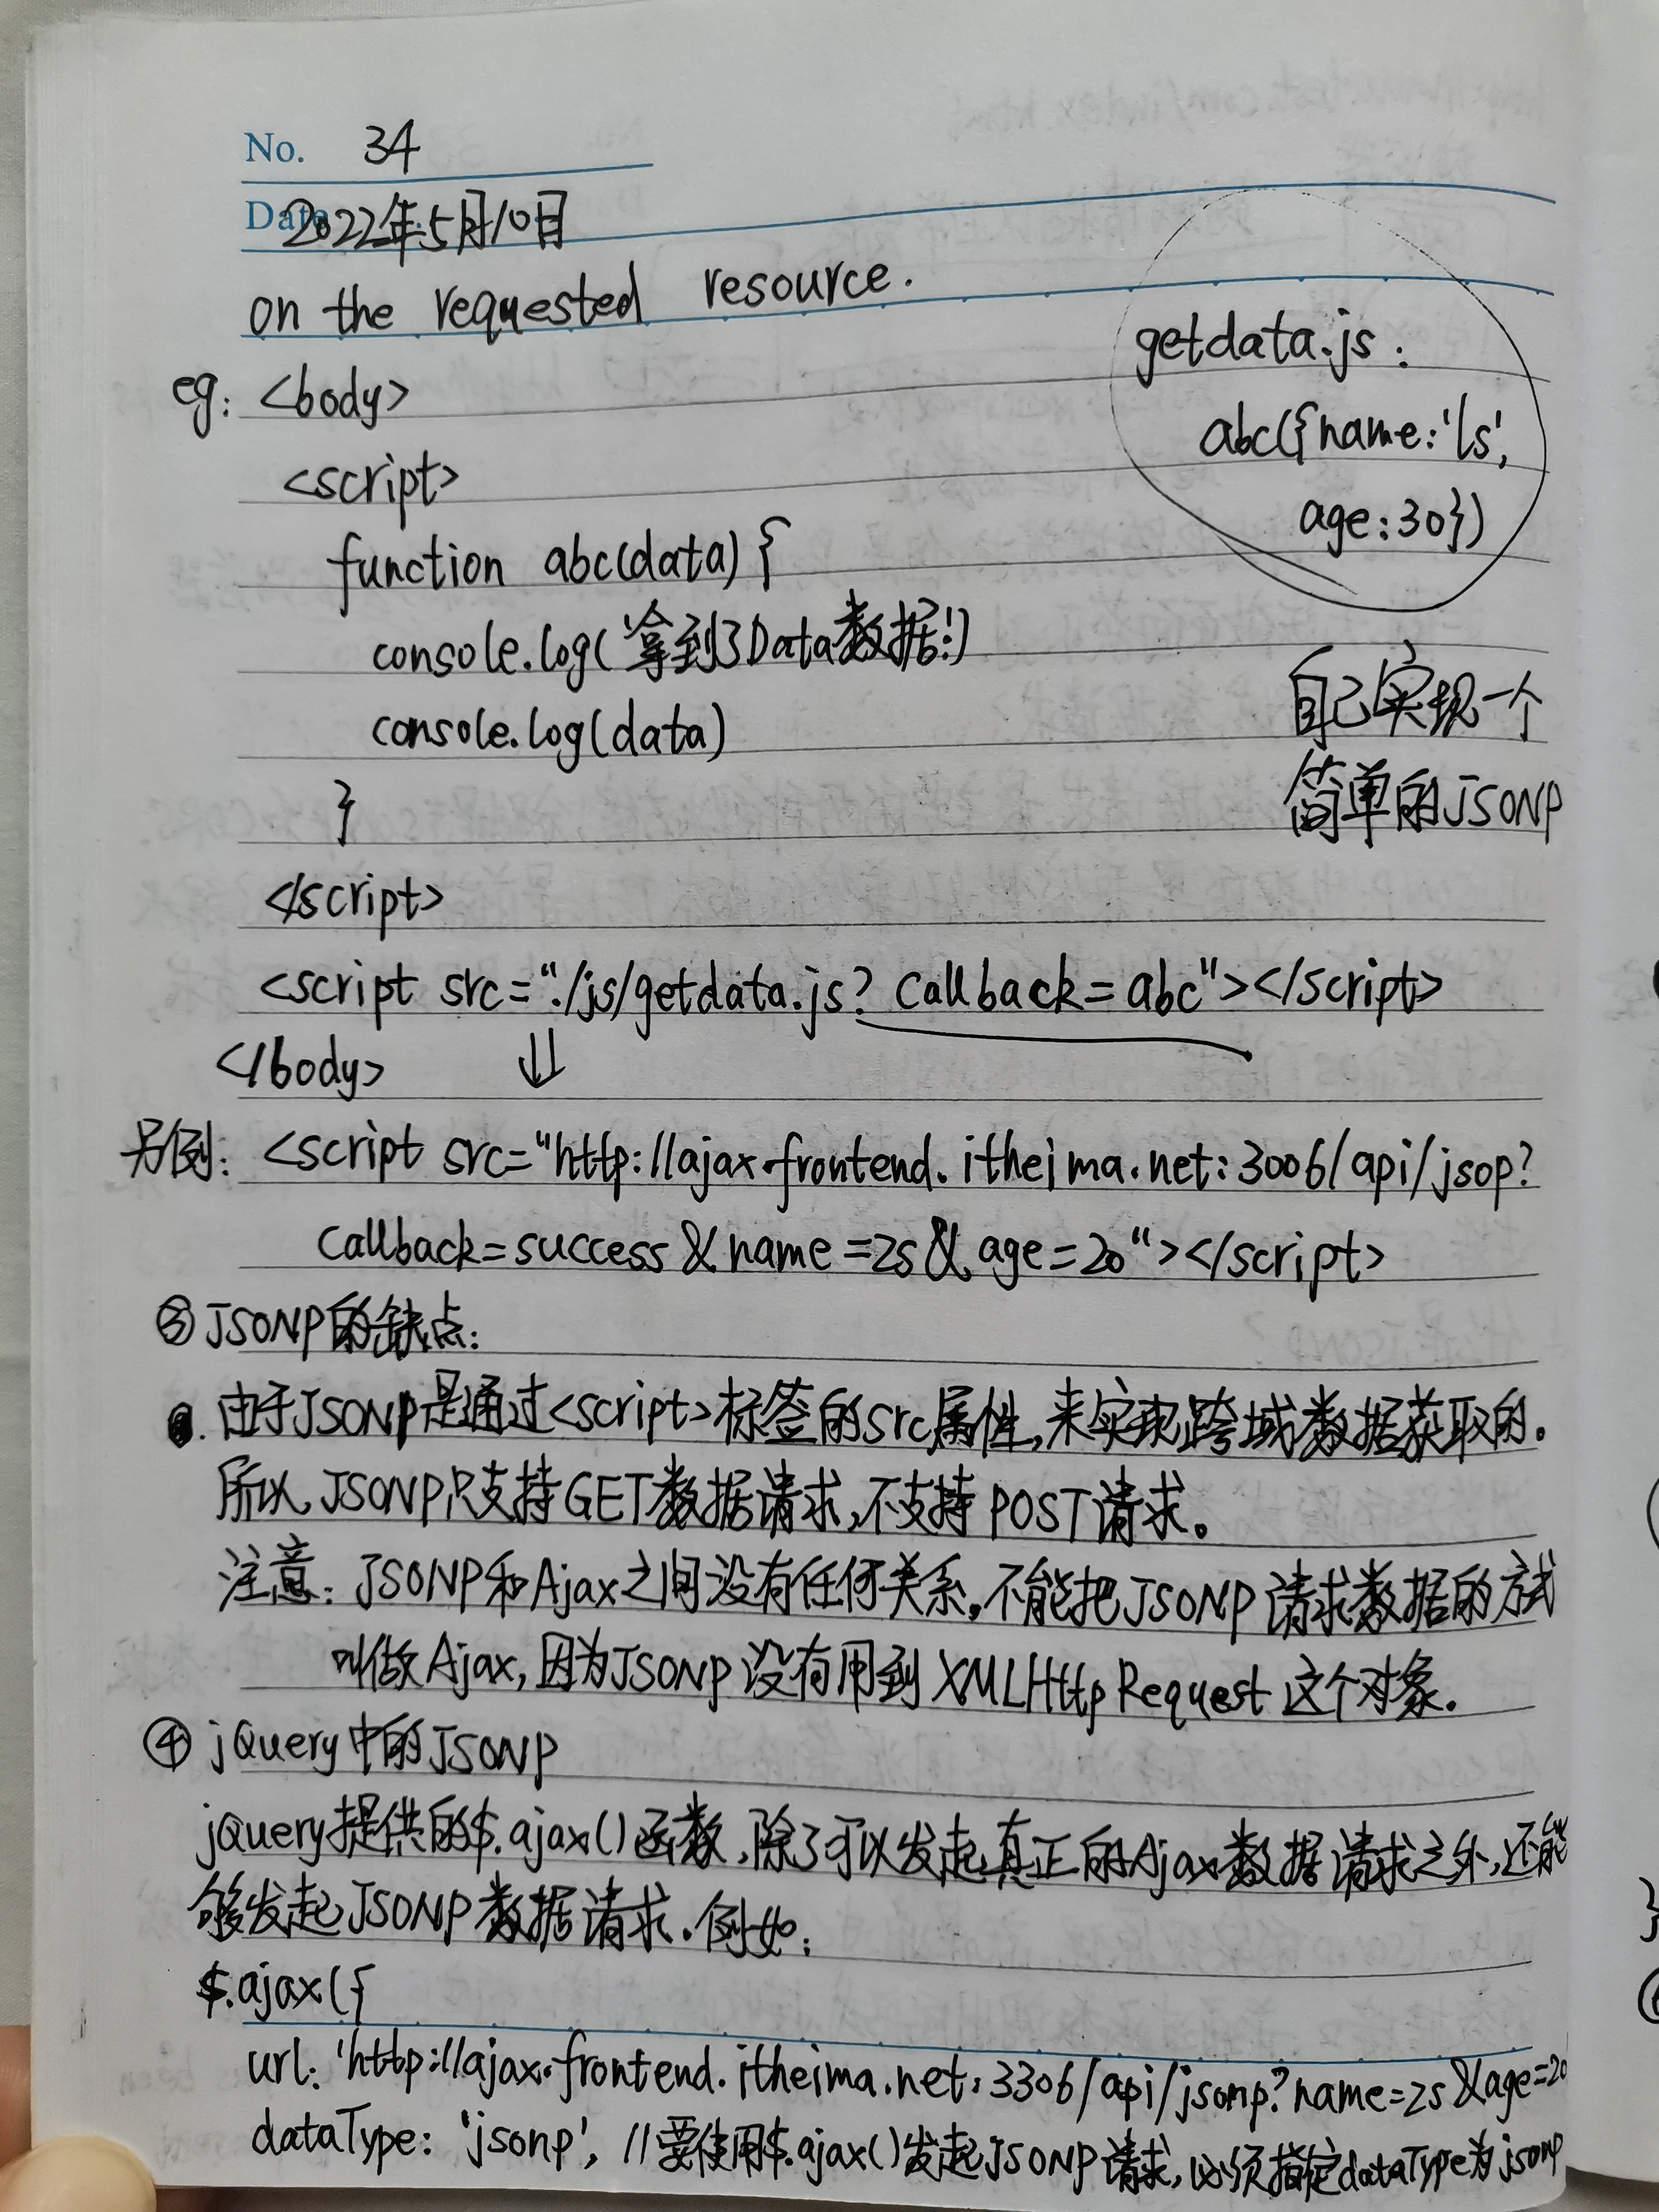 No. 34
Date 2022年5月10日
on the requested resource.
getdata.js:
abc({name:'ls',
age:30})
eg: <body>
<script>
function abc(data) {
console.log('拿到了Data数据!')
console.log(data)
}
自己实现一个
简单的JSONP
</script>
<script src="./js/getdata.js? callback=abc"></script>
</body> ⇓
另例: <script src="http://ajax.frontend.itheima.net:3006/api/jsop?
callback=success&name=zs&age=20"></script>
③ JSONP的缺点:
由于JSONP是通过<script>标签的src属性,来实现跨域数据获取的。
所以,JSONP只支持GET数据请求,不支持POST请求。
注意: JSONP和Ajax之间没有任何关系。不能把JSONP请求数据的方式
叫做Ajax,因为JSONP没有用到XMLHttpRequest这个对象.
④ jQuery中的JSONP
jQuery提供的$.ajax()函数,除了可以发起真正的Ajax数据请求之外,还能
够发起JSONP数据请求.例如:
$.ajax({
url: 'http://ajax.frontend.itheima.net:3306/api/jsonp?name=zs&age=20
dataType: 'jsonp', //要使用$.ajax()发起JSONP请求,必须指定dataType为jsonp